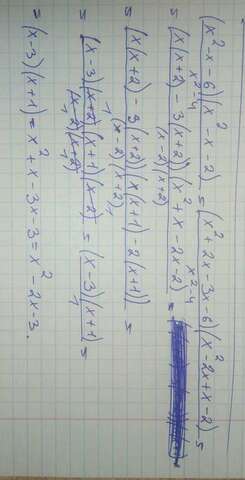 (x²-x-6)(x²-x-2) / x²-4 = (x²+2x-3x-6)(x²-2x+x-2) / x²-4 =
= (x(x+2)-3(x+2))(x²+x-2x-2) / (x-2)(x+2) =
= (x(x+2)-3(x+2))(x(x+1)-2(x+1)) / (x-2)(x+2) =
= (x-3)(x+2)(x+1)(x-2) / (x-2)(x+2) = (x-3)(x+1) / 1 =
= (x-3)(x+1) = x²+x-3x-3 = x²-2x-3.